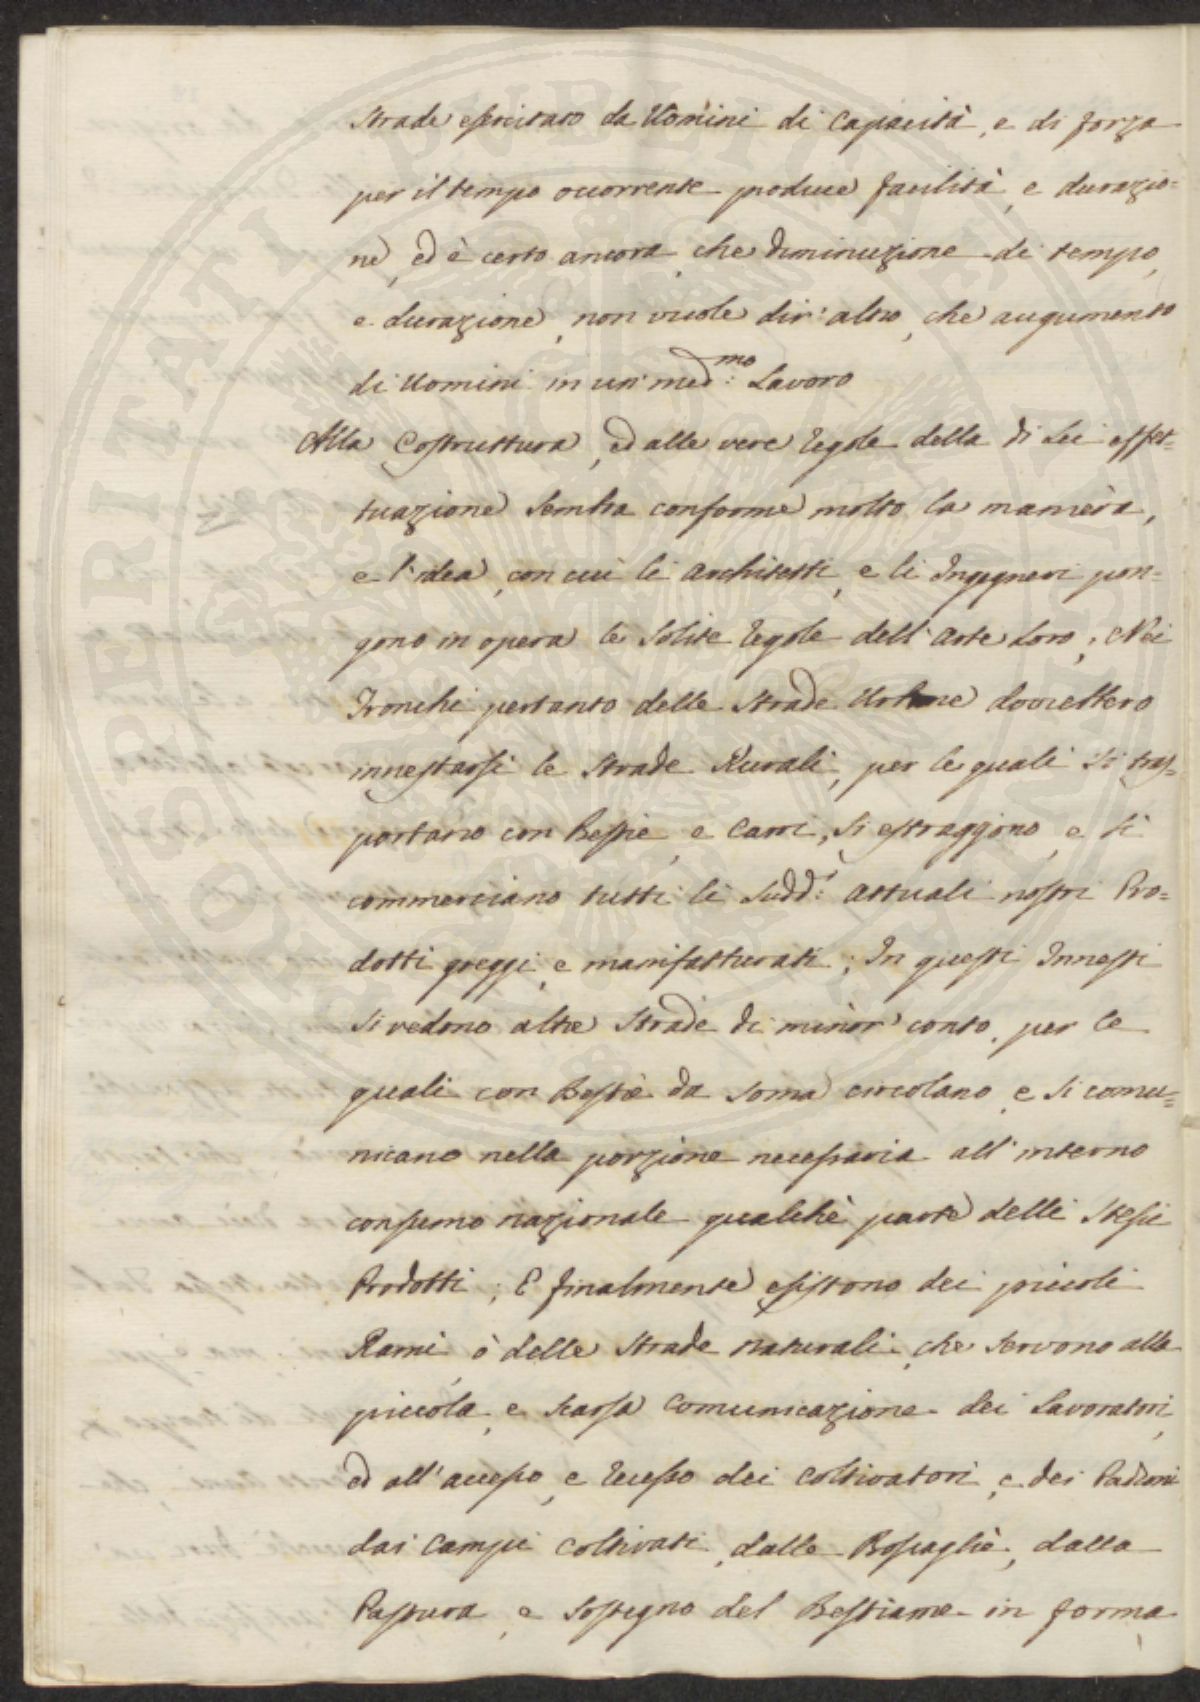 Strade esercitato da Uomini di Capacità, e di forza
per il tempo ocorrente produce facilità, e durazio=
ne, ed è certo ancora, che diminuzione di tempo,
e durazione, non vuole dir' altro, che augumento
di Uomini in un' med:mo Lavoro
Alla Costruttura, ed alle vere regole della di Lei effet=
tuazione sembra conforme molto la maniera,
e l'idea, con cui li Architetti, e li Ingegneri pon=
gono in opera le solite regole dell'Arte Loro; Nei
Tronchi pertanto delle Strade Urbane dovrebbero
innestarsi le Strade Rurali, per le quali si tras=
portano con Bestie, e Carri, si estraggono, e si
commerciano tutti li Sudd:i attuali nostri Pro=
dotti greggi, e manifatturati; In questi Innesti
si vedono altre Strade di minor' conto, per le
quali con Bestie da Soma circolano, e si comu=
nicano nella porzione necessaria all'interno
consumo nazionale qualche parte delli Stessi
Prodotti; E finalmente esistono dei piccoli
Rami, ò delle Strade naturali, che servono alla
piccola, e scarsa Comunicazione dei Lavoratori,
ed all'accesso, e recesso dei Coltivatori, e dei Padroni
dai Campi Coltivati, dalle Boscaglie, dalla
Pastura, e Sostegno del Bestiame in forma
PROSPERITATI PUBLICAE